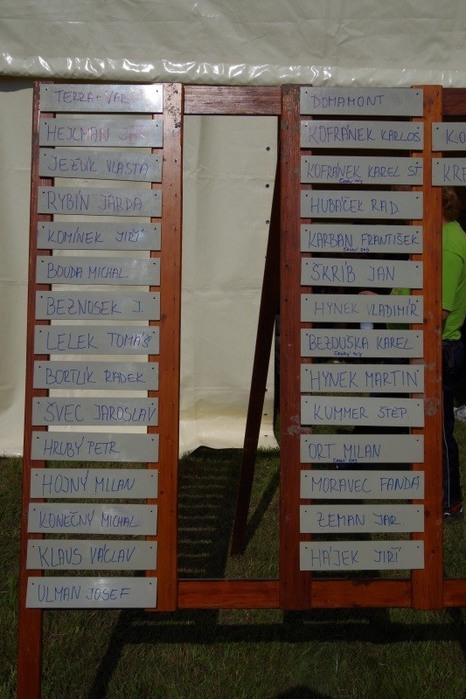 TERRA - VAL
HEJCMAN JAR
JEZDÍK VLASTA
RYBÍN JARDA
KOMÍNEK JIŘÍ
BOUDA MICHAL
BEZNOSEK J.
LELEK TOMÁŠ
BORTLÍK RADEK
ŠVEC JAROSLAV
HRUBÝ PETR
HOJNÝ MILAN
KONEČNÝ MICHAL
KLAUS VÁCLAV
ULMAN JOSEF
DOMAMONT
KOFRÁNEK KARLOS
KOFRÁNEK KAREL ST
HUBÁČEK RAD.
KARBAN FRANTIŠEK
ŠKRIB JAN
HYNEK VLADIMÍR
BEZDUŠKA KAREL
HYNEK MARTIN
KUMMER ŠTĚP
ORT MILAN
MORAVEC FANDA
ZEMAN JAR
HÁJEK JIŘÍ